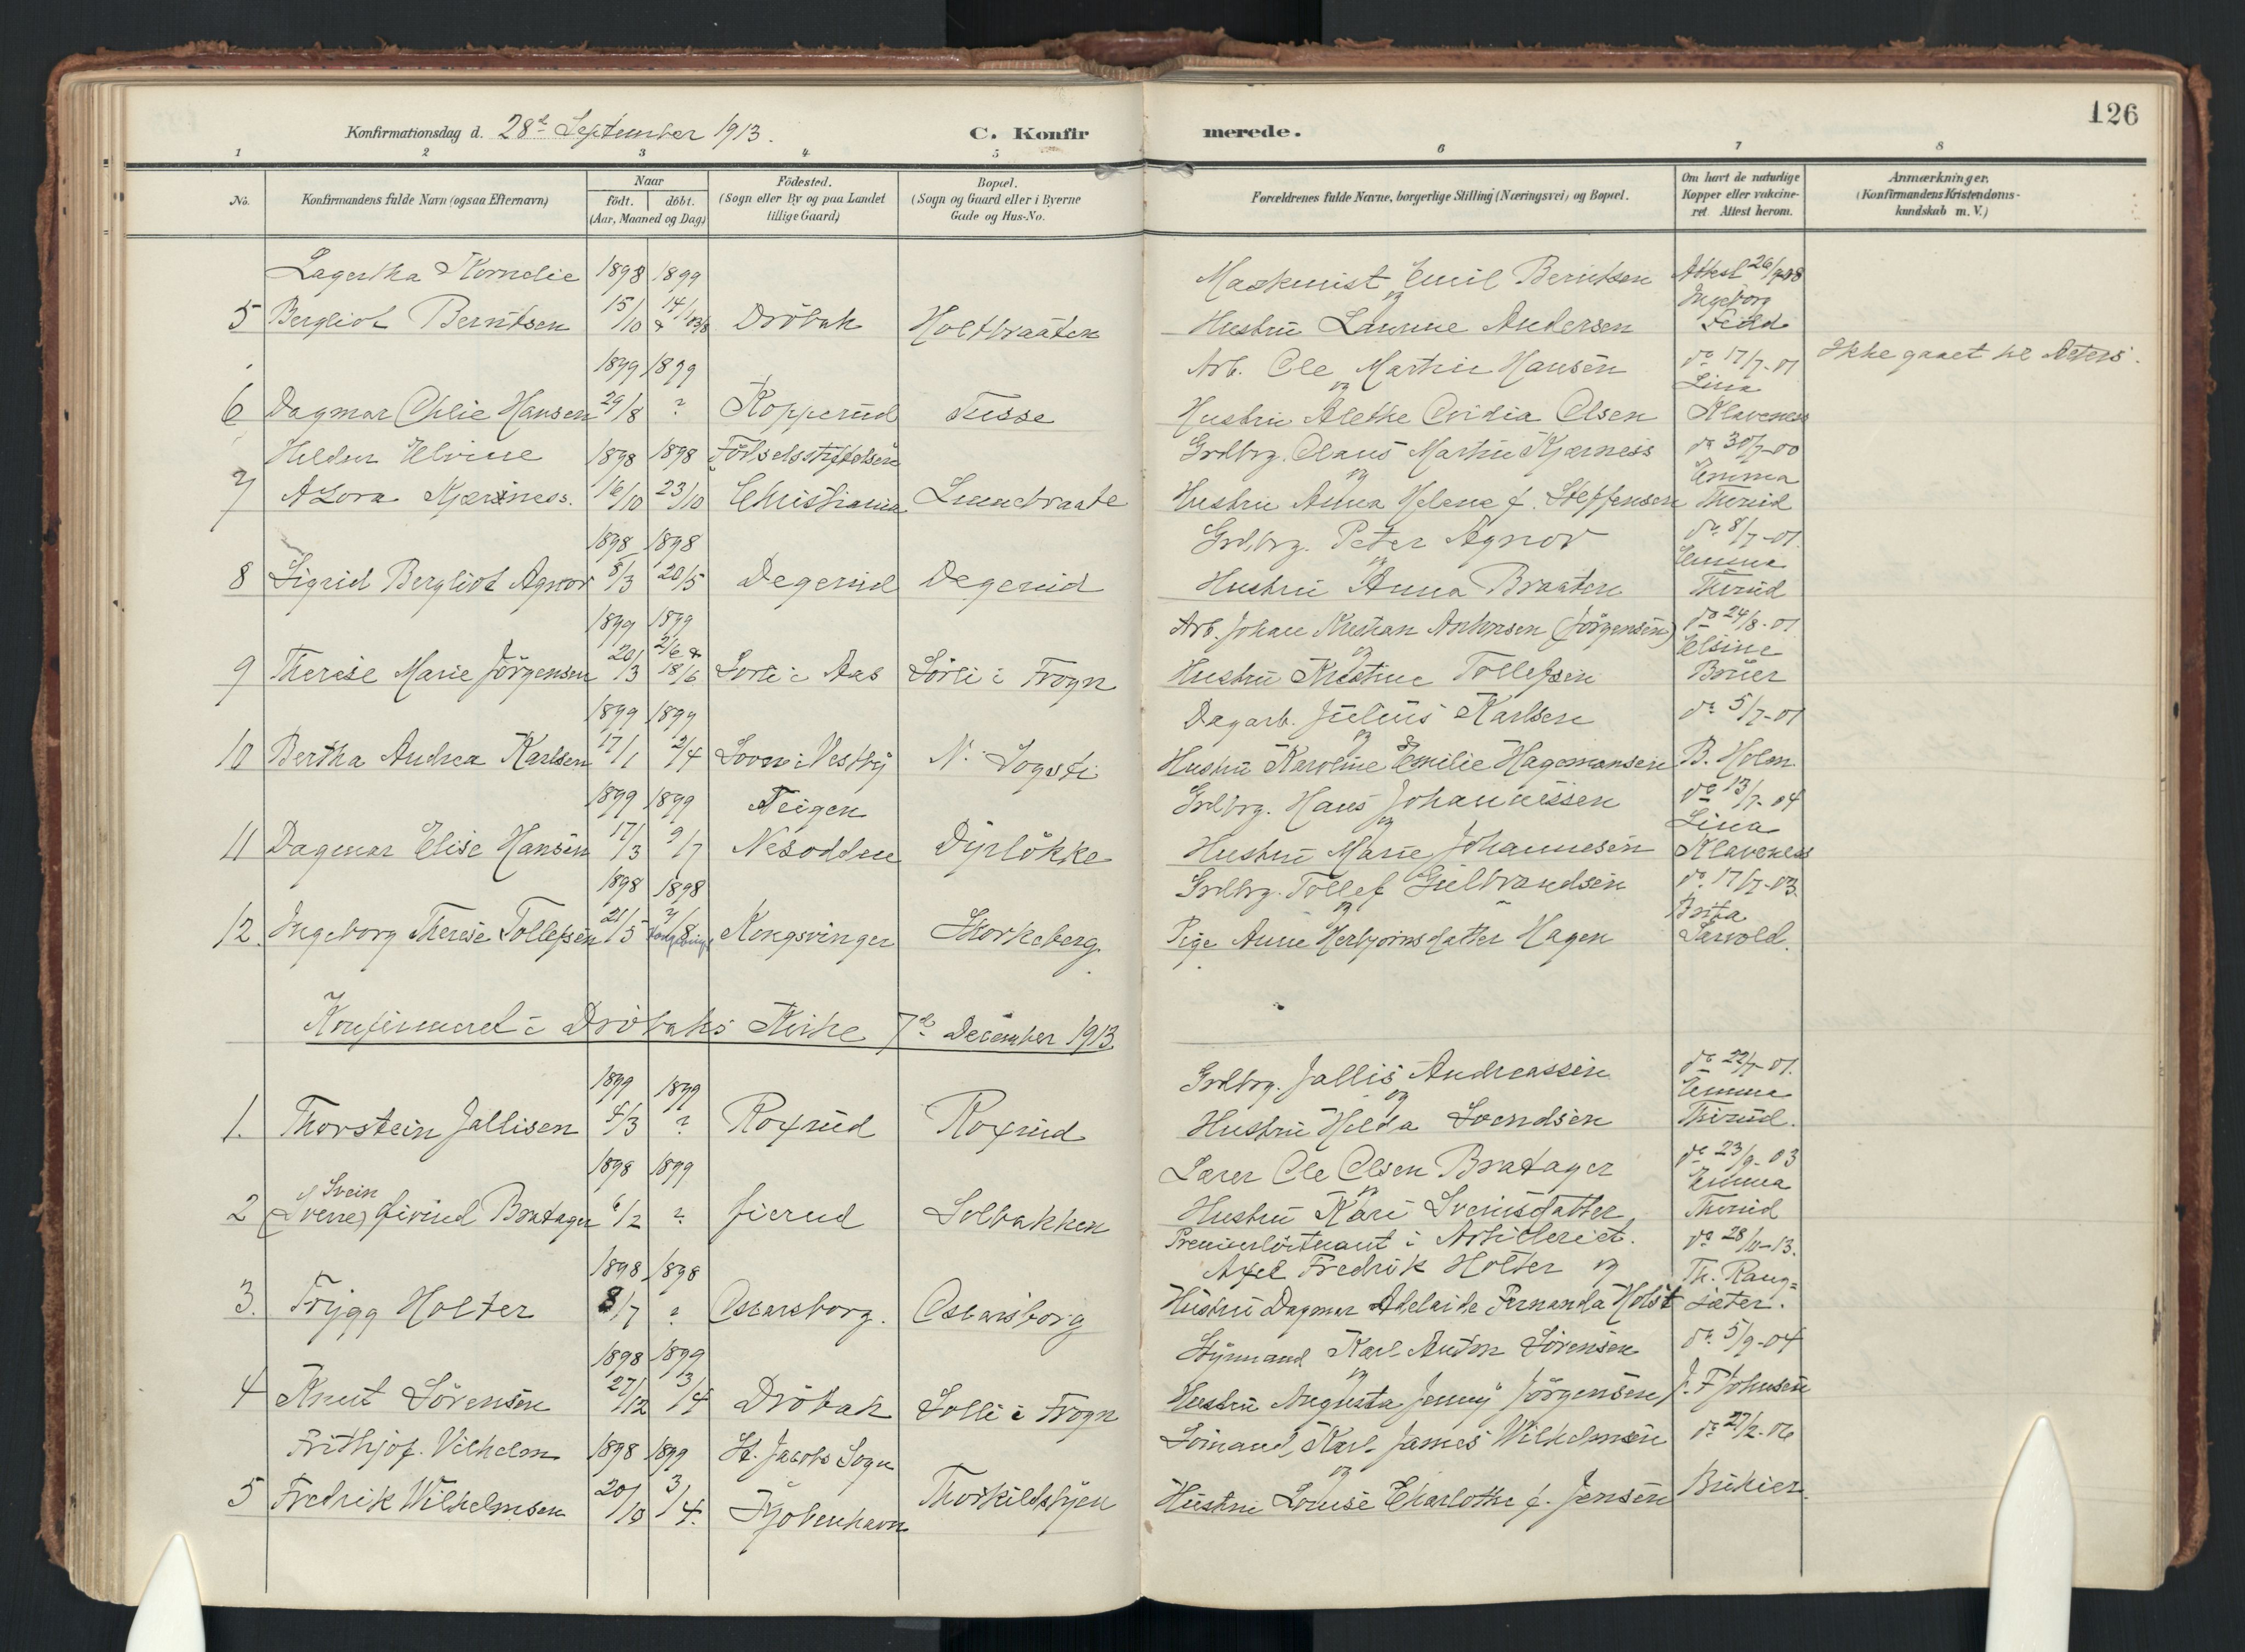 126
Konfirmationsdag d. 28d September 1913.
C. Konfirmerede.
1 2 3 4 5 6 7 8
No.
Konfirmandens fulde Navn (ogsaa Efternavn)
Naar
födt. döbt.
(Aar, Maaned og Dag)
Födested.
(Sogn eller By og paa Landet
tillige Gaard)
Bopæl.
(Sogn og Gaard eller i Byerne
Gade og Hus-No.
Forældrenes fulde Navne, borgerlige Stilling (Næringsvei) og Bopæl.
Om havt de naturlige
Kopper eller vakcine-
ret Attest herom.
Anmærkninger.
(Konfirmandens Kristendoms-
kundskab m. V.)
Lagertha Kornelie 1898 1899 Maskinist Emil Berntsen Attest 26/9
og Ingeborg
5 Bergliot Berntsen 15/10 14/1 Dröbak Holtbraaten Hustru Laurine Andersen
1899 1899 Arb. Ole Martin Hansen do 17/7-01 Ikke gaaet til Alters.
og Lina
6 Dagmar Oline Hansen 29/8 ? Kopperud Tusse Hustru Alethe Ovidia Olsen Klaveness
Helder Elvine 1898 1898 Födselsstiftelsen Grdbrg. Olaus Martin Kjærness do 30/7-00
og Emma
7 Azora Kjærness. 16/10 23/10 Christiania Lunebraate Hustru Anna Helene f. Steffensen Therud
1898 1898 Grdbrg. Peter Agnor do 8/7-01.
og Emma
8 Sigrid Bergliot Agnor 8/3 20/5 Degerud Degerud Hustru Anna Braaten Therud
1899 1899 Arb. Johan Kristian Antonsen (Jörgensen) do 24/8-01
2/6 & og Elsine
9 Therese Marie Jörgensen 20/3 18/6 Sorli i Aas Sörli i Frogn Hustru Kristine Tollefsen Bruer
1899 1899 Dagarb. Julius Karlsen do 5/7-01
og
10 Bertha Andrea Karlsen 17/1 2/4 Soon i Vestby N. Sogsti Hustru Karoline Emilie Hagemansen B. Holm
1899 1899 Teigen Grdbrg. Hans Johannessen do 13/7-04
og Lina
11 Dagmar Elise Hansen 17/3 9/7 Nesodden Dyrlökke Hustru Marie Johannesen Klaveness
1898 1898 Grdbrg. Tollef Gulbrandsen do 17/7-03.
og Brita
12. Ingeborg Therese Tollefsen 21/5 7/8 Kongsvinger Storkeberg. Pige Anne Herbjornsdatter Hagen Sarvold.
Konfirmeret i Dröbaks Kirke 7de December 1913
1899 1899 Grdbrg. Jallis Andreassen do 22/7-01.
og Emma
1. Thorstein Jallisen 4/3 ? Roxrud Roxrud Hustru Helda Svendsen Therud.
1898 1899 Lærer Ole Olsen Bratager do 23/9-03
Svein og Emma
2 (Sverre) Öivind Bratager 6/2 ? Jierud Solbakken Hustru Kari Sveinsdatter Therud
Premierlöitnant i Artilleriet. do 28/11-13.
1898 1898 Axel Fredrik Holter og Th. Raug=
3. Trygg Holter 8/7 ? Oscarsborg. Oscarsborg Hustru Dagmar Adelaide Fernanda Holst sæter.
1898 1899 Styrmand Karl Anton Sörensen do 5/9-04
og
4 Knut Sörensen 27/12 3/4 Dröbak Solli i Frogn Hustru Augusta Jenny Jörgensen J. F Johnsen
Frithjof. Vilhelm 1898 1899 St. Jacobs Sogn Sömand, Karl James Wilhelmsen do 27/2-06
og
5 Fredrik Wilhelmsen 20/10 3/4. Kjobenhavn Thorkildsbyen Hustru Louise Charlothe f. Jensen